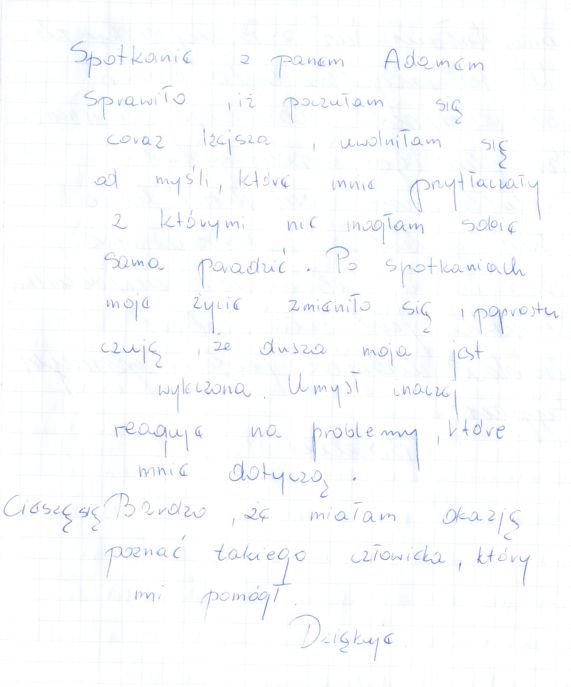 Spotkanie z panem Adamem
sprawiło , iż poczułam się
coraz lżejsza , uwolniłam się
od myśli, które mnie przytłaczały
z którymi nie mogłam sobie
sama poradzić . Po spotkaniach
moje życie zmieniło się i poprostu
czuję , że dusza moja jest
wyleczona. Umysł inaczej
reaguje na problemy , które
mnie dotyczą .
Cieszę się Bardzo , że miałam okazję
poznać takiego człowieka , który
mi pomógł.
Dziękuję